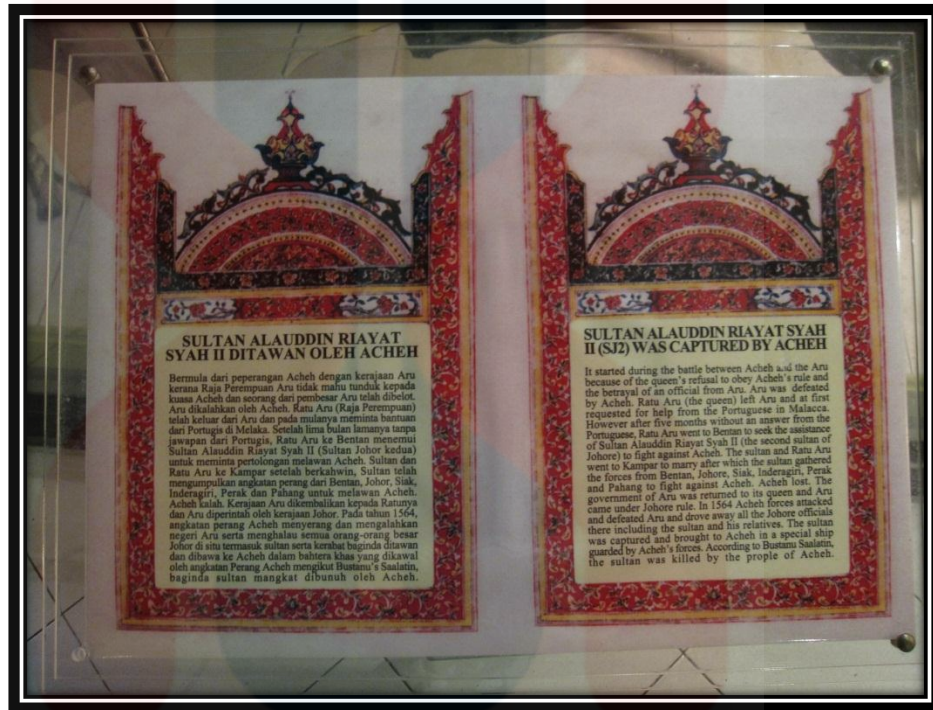 SULTAN ALAUDDIN RIAYAT
SYAH II DITAWAN OLEH ACHEH
Bermula dari peperangan Acheh dengan kerajaan Aru
kerana Raja Perempuan Aru tidak mahu tunduk kepada
kuasa Acheh dan seorang dari pembesar Aru telah dibelot.
Aru dikalahkan oleh Acheh. Ratu Aru (Raja Perempuan)
telah keluar dari Aru dan pada mulanya meminta bantuan
dari Portugis di Melaka. Setelah lima bulan lamanya tanpa
jawapan dari Portugis, Ratu Aru ke Bentan menemui
Sultan Alauddin Riayat Syah II (Sultan Johor kedua)
untuk meminta pertolongan melawan Acheh. Sultan dan
Ratu Aru ke Kampar setelah berkahwin, Sultan telah
mengumpulkan angkatan perang dari Bentan, Johor, Siak,
Inderagiri, Perak dan Pahang untuk melawan Acheh.
Acheh kalah. Kerajaan Aru dikembalikan kepada Ratunya
dan Aru diperintah oleh kerajaan Johor. Pada tahun 1564,
angkatan perang Acheh menyerang dan mengalahkan
negeri Aru serta menghalau semua orang-orang besar
Johor di situ termasuk sultan serta kerabat baginda ditawan
dan dibawa ke Acheh dalam bahtera khas yang dikawal
oleh angkatan Perang Acheh mengikut Bustanu's Saalatin,
baginda sultan mangkat dibunuh oleh Acheh.
SULTAN ALAUDDIN RIAYAT SYAH
II (SJ2) WAS CAPTURED BY ACHEH
It started during the battle between Acheh and the Aru
because of the queen's refusal to obey Acheh's rule and
the betrayal of an official from Aru. Aru was defeated
by Acheh. Ratu Aru (the queen) left Aru and at first
requested for help from the Portuguese in Malacca.
However after five months without an answer from the
Portuguese, Ratu Aru went to Bentan to seek the assistance
of Sultan Alauddin Riayat Syah II (the second sultan of
Johore) to fight against Acheh. The sultan and Ratu Aru
went to Kampar to marry after which the sultan gathered
the forces from Bentan, Johore, Siak, Inderagiri, Perak
and Pahang to fight against Acheh. Acheh lost. The
government of Aru was returned to its queen and Aru
came under Johore rule. In 1564 Acheh forces attacked
and defeated Aru and drove away all the Johore officials
there including the sultan and his relatives. The sultan
was captured and brought to Acheh in a special ship
guarded by Acheh's forces. According to Bustanu Saalatin,
the sultan was killed by the prople of Acheh.